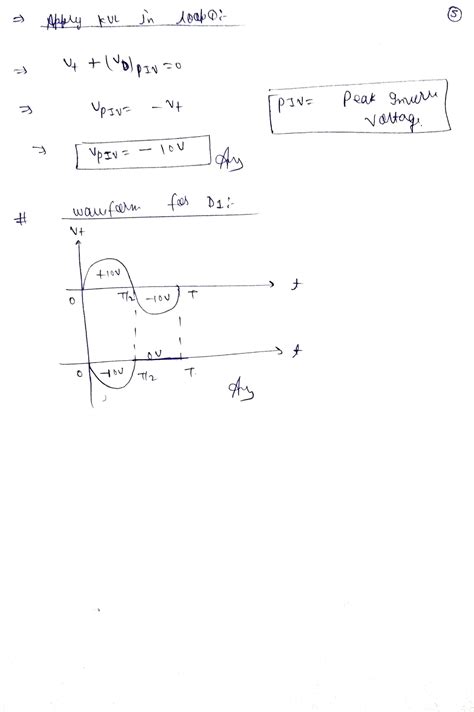 ⇒ Apply KVL in loop①:-
⑤
⇒ Vt + (VD)PIV = 0
⇒ VPIV = - Vt
PIV = Peak Inverse Voltage.
⇒ VPIV = - 10V Ans
# waveform for D1:-
Vt
+10V
0 T/2 -10V T t
0V t
0 -10V T/2 T
Ans